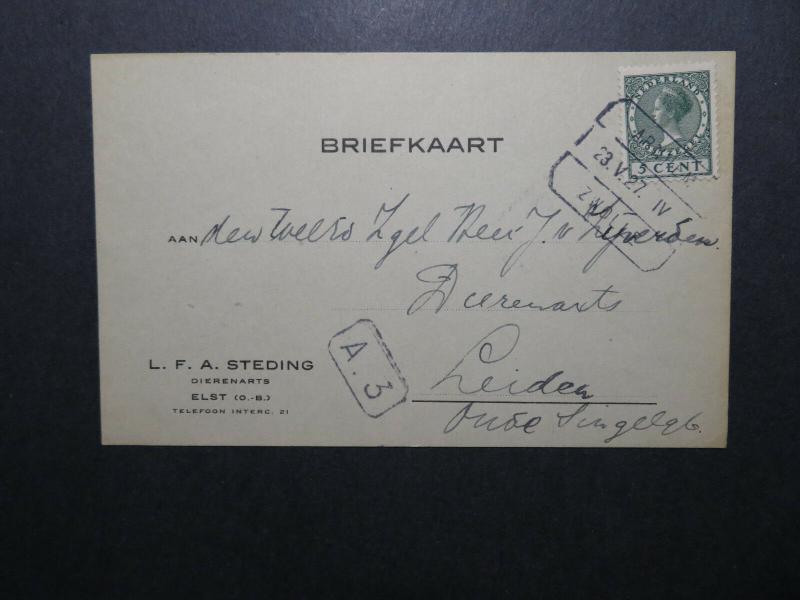 BRIEFKAART
NEDERLAND
5 CENT
23.V.27. IV
AAN den Heer J. v.
Dierenarts
Leiden
Oude Singel
A. 3
L. F. A. STEDING
DIERENARTS
ELST (O.-B.)
TELEFOON INTERC. 21